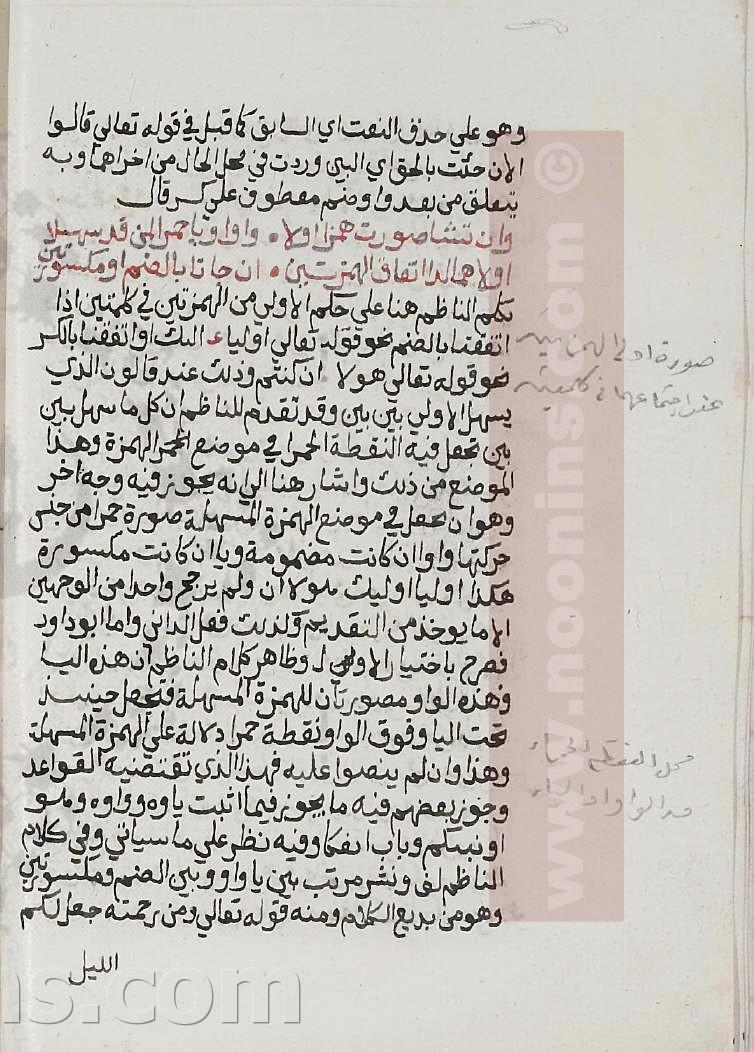 وهو علي حذف النعت اي السابق كما قيل في قوله تعالي قالوا
الان جئت بالحق اي البين وردت في محل الحال من اخراهما وبه
يتعلق من بعد واو ضم معطوف علي كسر قال
وان تشا صورت همزا اولا • واوا ويا حمرا لمن قد سهلا
اولاهما لدا اتفاق الهمزتين • ان جاتا بالضم او مكسورتين
تكلم الناظم هنا علي حكم الاولي من الهمزتين في كلمتين اذا
اتفقتا بالضم نحو قوله تعالي اولياء اليك او اتفقتا بالكسر
نحو قوله تعالي هولا ان كنتم وذلك عند قالون الذي
يسهل الاولي بين بين وقد تقدم للناظم ان كل ما سهل بين
بين تجعل فيه النقطة الحمرا في موضع الهمزة وهذا
الموضع من ذلك واشار هنا الي انه يجوز فيه وجه اخر
وهو ان تجعل في موضع الهمزة المسهلة صورة حمرا من جنس
حركتها واوا ان كانت مضمومة ويا ان كانت مكسورة
هكذا اوليا اوليك هولا ان ولم يرجح واحدا من الوجهين
الا ما يوخذ من التقديم وكذلك فعل الداني واما ابو داود
فصرح باختيار الاول وظاهر كلام الناظم ان هذه اليا
وهذه الواو مصورتان للهمزة المسهلة فتجعل حينيذ
تحت اليا وفوق الواو نقطة حمرا دلالة علي الهمزة المسهلة
وهذا وان لم ينصوا عليه فهذا الذي تقتضيه القواعد
وجوز بعضهم فيه ما يجوز فيما اثبت ياوه وواوه وملو
اونبيكم وباب وفيه نظر علي ما سياتي وفي كلام
الناظم لف ونشر مرتب بين يا واو وبين الضم ومكسورتين
وهو من بديع الكلام ومنه قوله تعالي ومن رحمته جعل لكم
الليل
صورة اولي الهمزتين
عند اجتماعهما في كلمتين
محل النقطة الحمراء
من الواو او الياء
www.noorins.com ©
ns.com